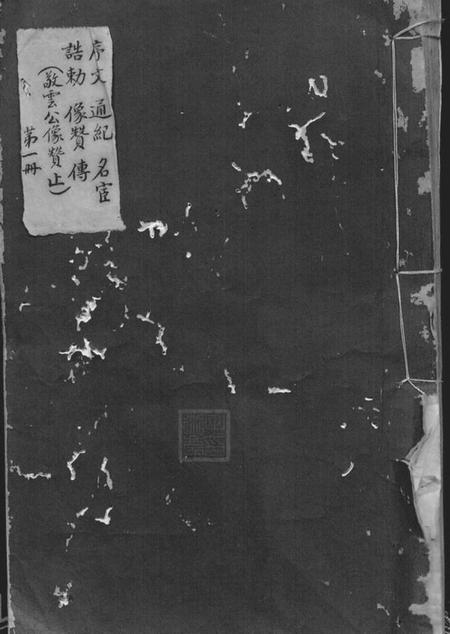 序文 通紀 名宦
誥勅 像贊 傳
(敬雲公像贊止)
第一冊